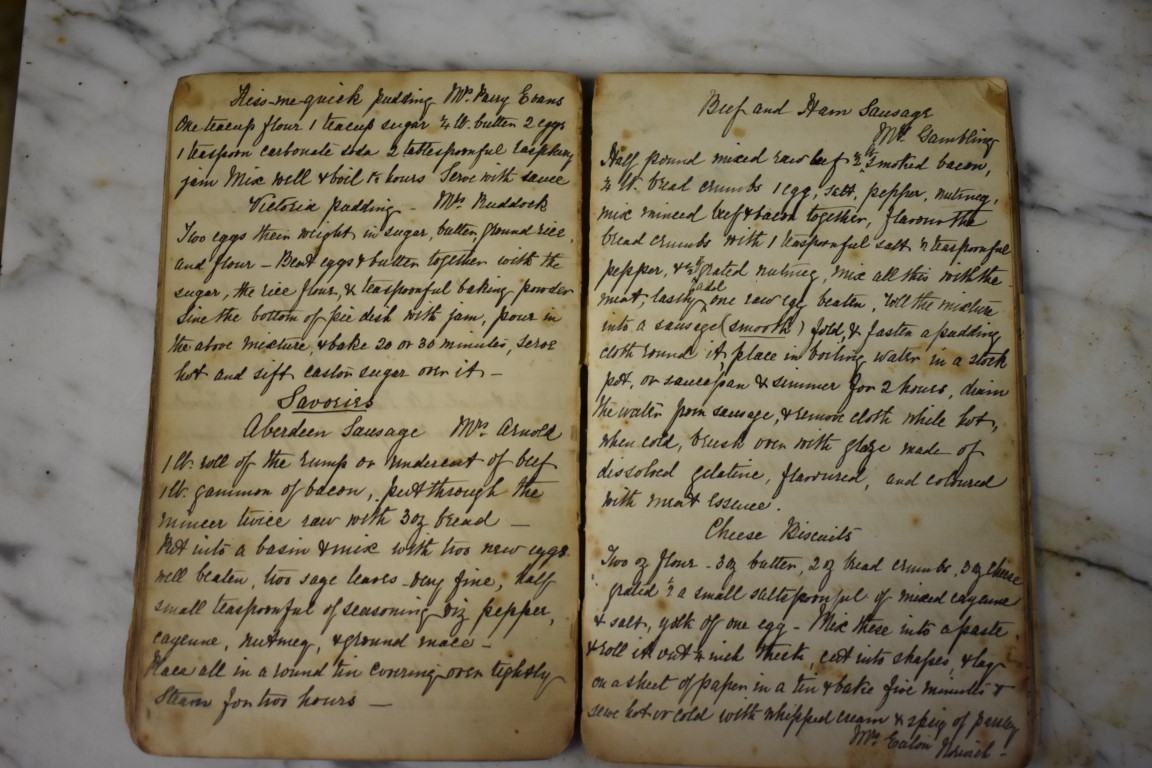 Kiss-me-quick pudding Mrs Parry Evans
One teacup flour 1 teacup sugar ¼ lb. butter 2 eggs
1 teaspoon carbonate soda 2 tablespoonful raspberry
jam Mix well & boil 1½ hours Serve with sauce
Victoria pudding - Mrs Ruddock
Two eggs their weight in sugar, butter, ground rice,
and flour - Beat eggs & butter together with the
sugar, the rice flour, & teaspoonful baking powder
Line the bottom of pie dish with jam, pour in
the above mixture, & bake 20 or 30 minutes, serve
hot and sift castor sugar over it -
Savories
Aberdeen Sausage Mrs Arnold
1 lb. roll of the rump or undercut of beef
1 lb. gammon of bacon, put through the
mincer twice raw with 3 oz bread -
Put into a basin & mix with two new eggs
well beaten, two sage leaves - very fine, half
small teaspoonful of seasoning viz pepper,
cayenne, nutmeg, & ground mace -
Place all in a round tin covering over tightly
Steam for two hours -
Beef and Ham Sausage
Mrs Gambling
Half pound minced raw beef ½ lb smoked bacon,
¼ lb. bread crumbs 1 egg, salt, pepper, nutmeg,
mix minced beef & bacon together, flavour the
bread crumbs with 1 teaspoonful salt ½ teaspoonful
pepper, & grated nutmeg, mix all this with the
meat, lastly add one raw egg beaten, roll the mixture
into a sausage (smooth) fold, & fasten a pudding
cloth round it, place in boiling water in a stock
pot, or saucepan & simmer for 2 hours, drain
the water from sausage, & remove cloth while hot,
when cold, brush over with glaze made of
dissolved gelatine, flavoured, and coloured
with meat essence.
Cheese Biscuits
Two oz flour - 3 oz butter, 2 oz bread crumbs, 3 oz cheese
grated ½ a small saltspoonful of mixed cayenne
& salt, yolk of one egg - Mix these into a paste
& roll it out ¼ inch thick, cut into shapes, & lay
on a sheet of paper in a tin & bake five minutes &
serve hot or cold with whipped cream & sprig of parsley
Mrs Eaton Norwich -